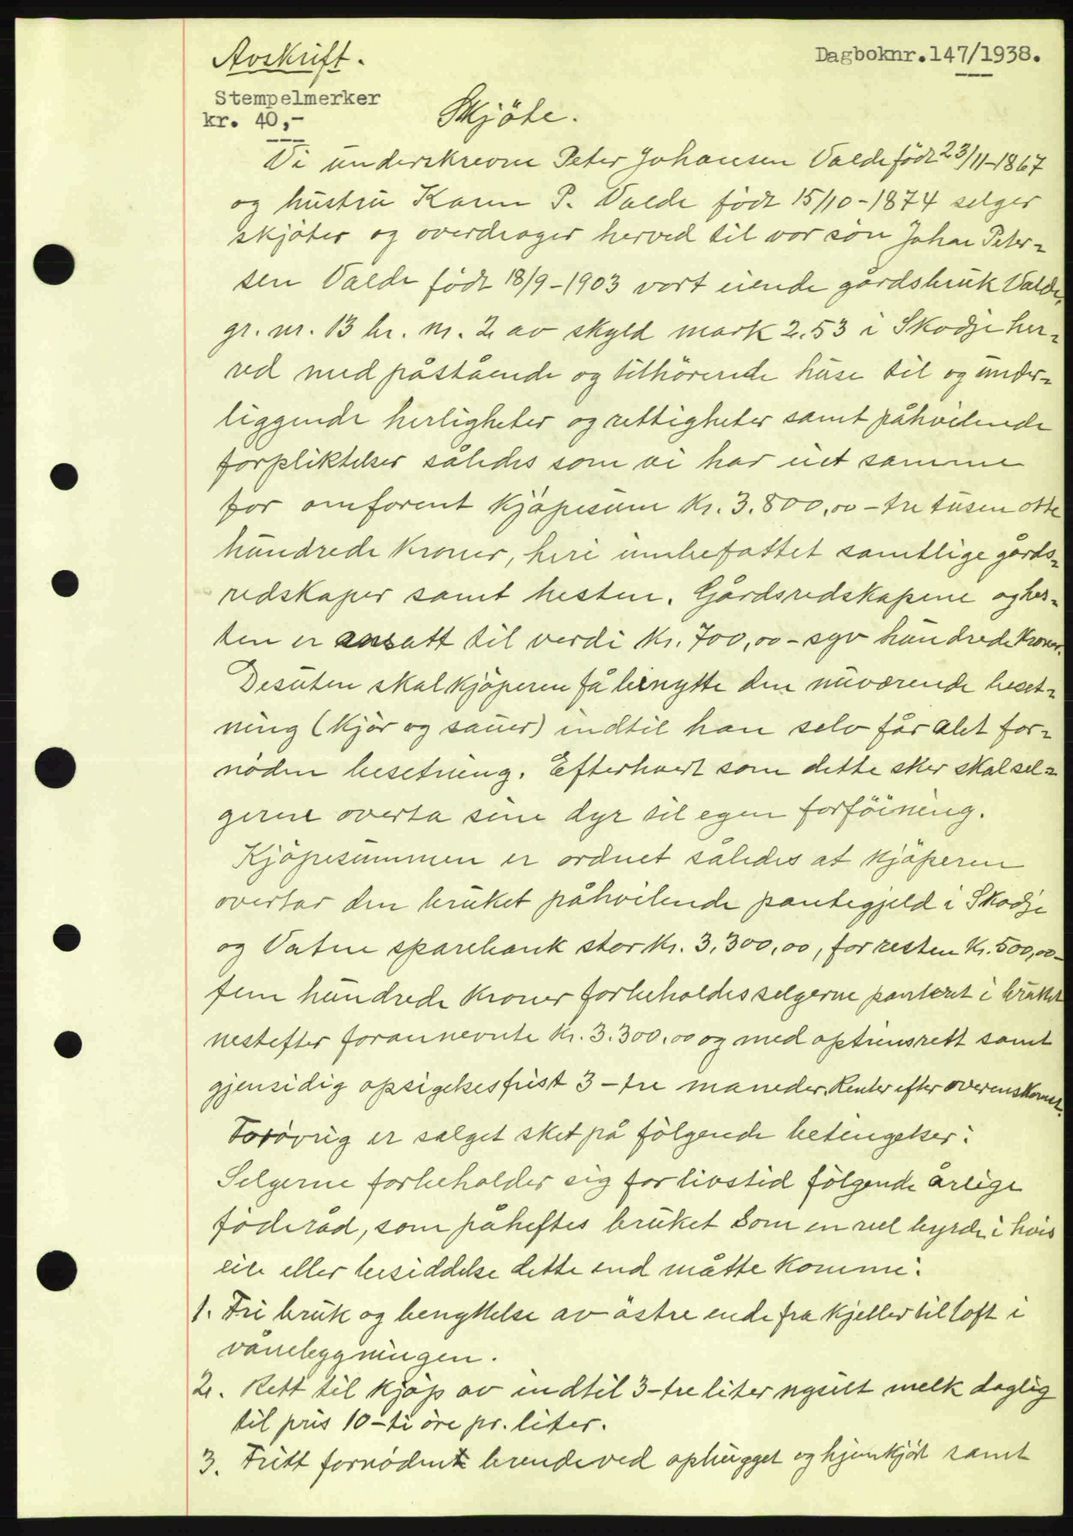 Avskrift.
Dagboknr.147/1938.
Stempelmerker
kr. 40,-
Skjöte.
Vi underskrevne Peter Johansen Valde født 23/11-1867
og hustru Karen P. Valde født 15/10-1874 selger
skjöter og overdrager herved til vor søn Johan Peter=
sen Valde født 18/9-1903 vort eiende gårdsbruk Valde,
gr. nr. 13 br. nr. 2 av skyld mark 2.53 i Skodje her=
red med påstående og tilhörende huse til og under=
liggende herligheter og rettigheter samt påhvilende
forpliktelser således som vi har eiet samme
for omforent kjöpesum kr. 3.800,00 - tre tusen otte
hundrede kroner, heri innbefattet samtlige gårds=
redskaper samt hesten. Gårdsredskapene og hes=
ten er ansatt til verdi kr. 700,00 - syv hundrede kroner.
Desuten skal kjöperen få benytte den nuværende beset=
ning (kjör og sauer) indtil han selv får alet for=
nöden besetning. Efterhvert som dette sker skal sel=
gerne overta sine dyr til egen forföining.
Kjöpesummen er ordnet således at kjöperen
overtar den bruket påhvilende pantegjeld i Skodje
og Vatne sparebank stor kr. 3.300,00, for resten kr. 500,00-
fem hundrede kroner forbeholdes selgerne panteret i bruket
nestefter forannevnte kr. 3.300,00 og med optrinsrett samt
gjensidig opsigelsesfrist 3 - tre maneder. Renter efter overenskomst.
Forövrig er salget sket på fölgende betingelser:
Selgerne forbeholder sig for livstid fölgende årlige
föderåd, som påheftes bruket som en reel byrde i hvis
eie eller besiddelse dette end måtte komme:
1. Fri bruk og benyttelse av östre ende fra kjeller til loft i
vånebygningen.
2. Rett til kjöp av indtil 3-tre liter nysilt melk daglig
til pris 10-ti öre pr. liter.
3. Fritt fornödent brendeved ophugget og hjemkjört samt